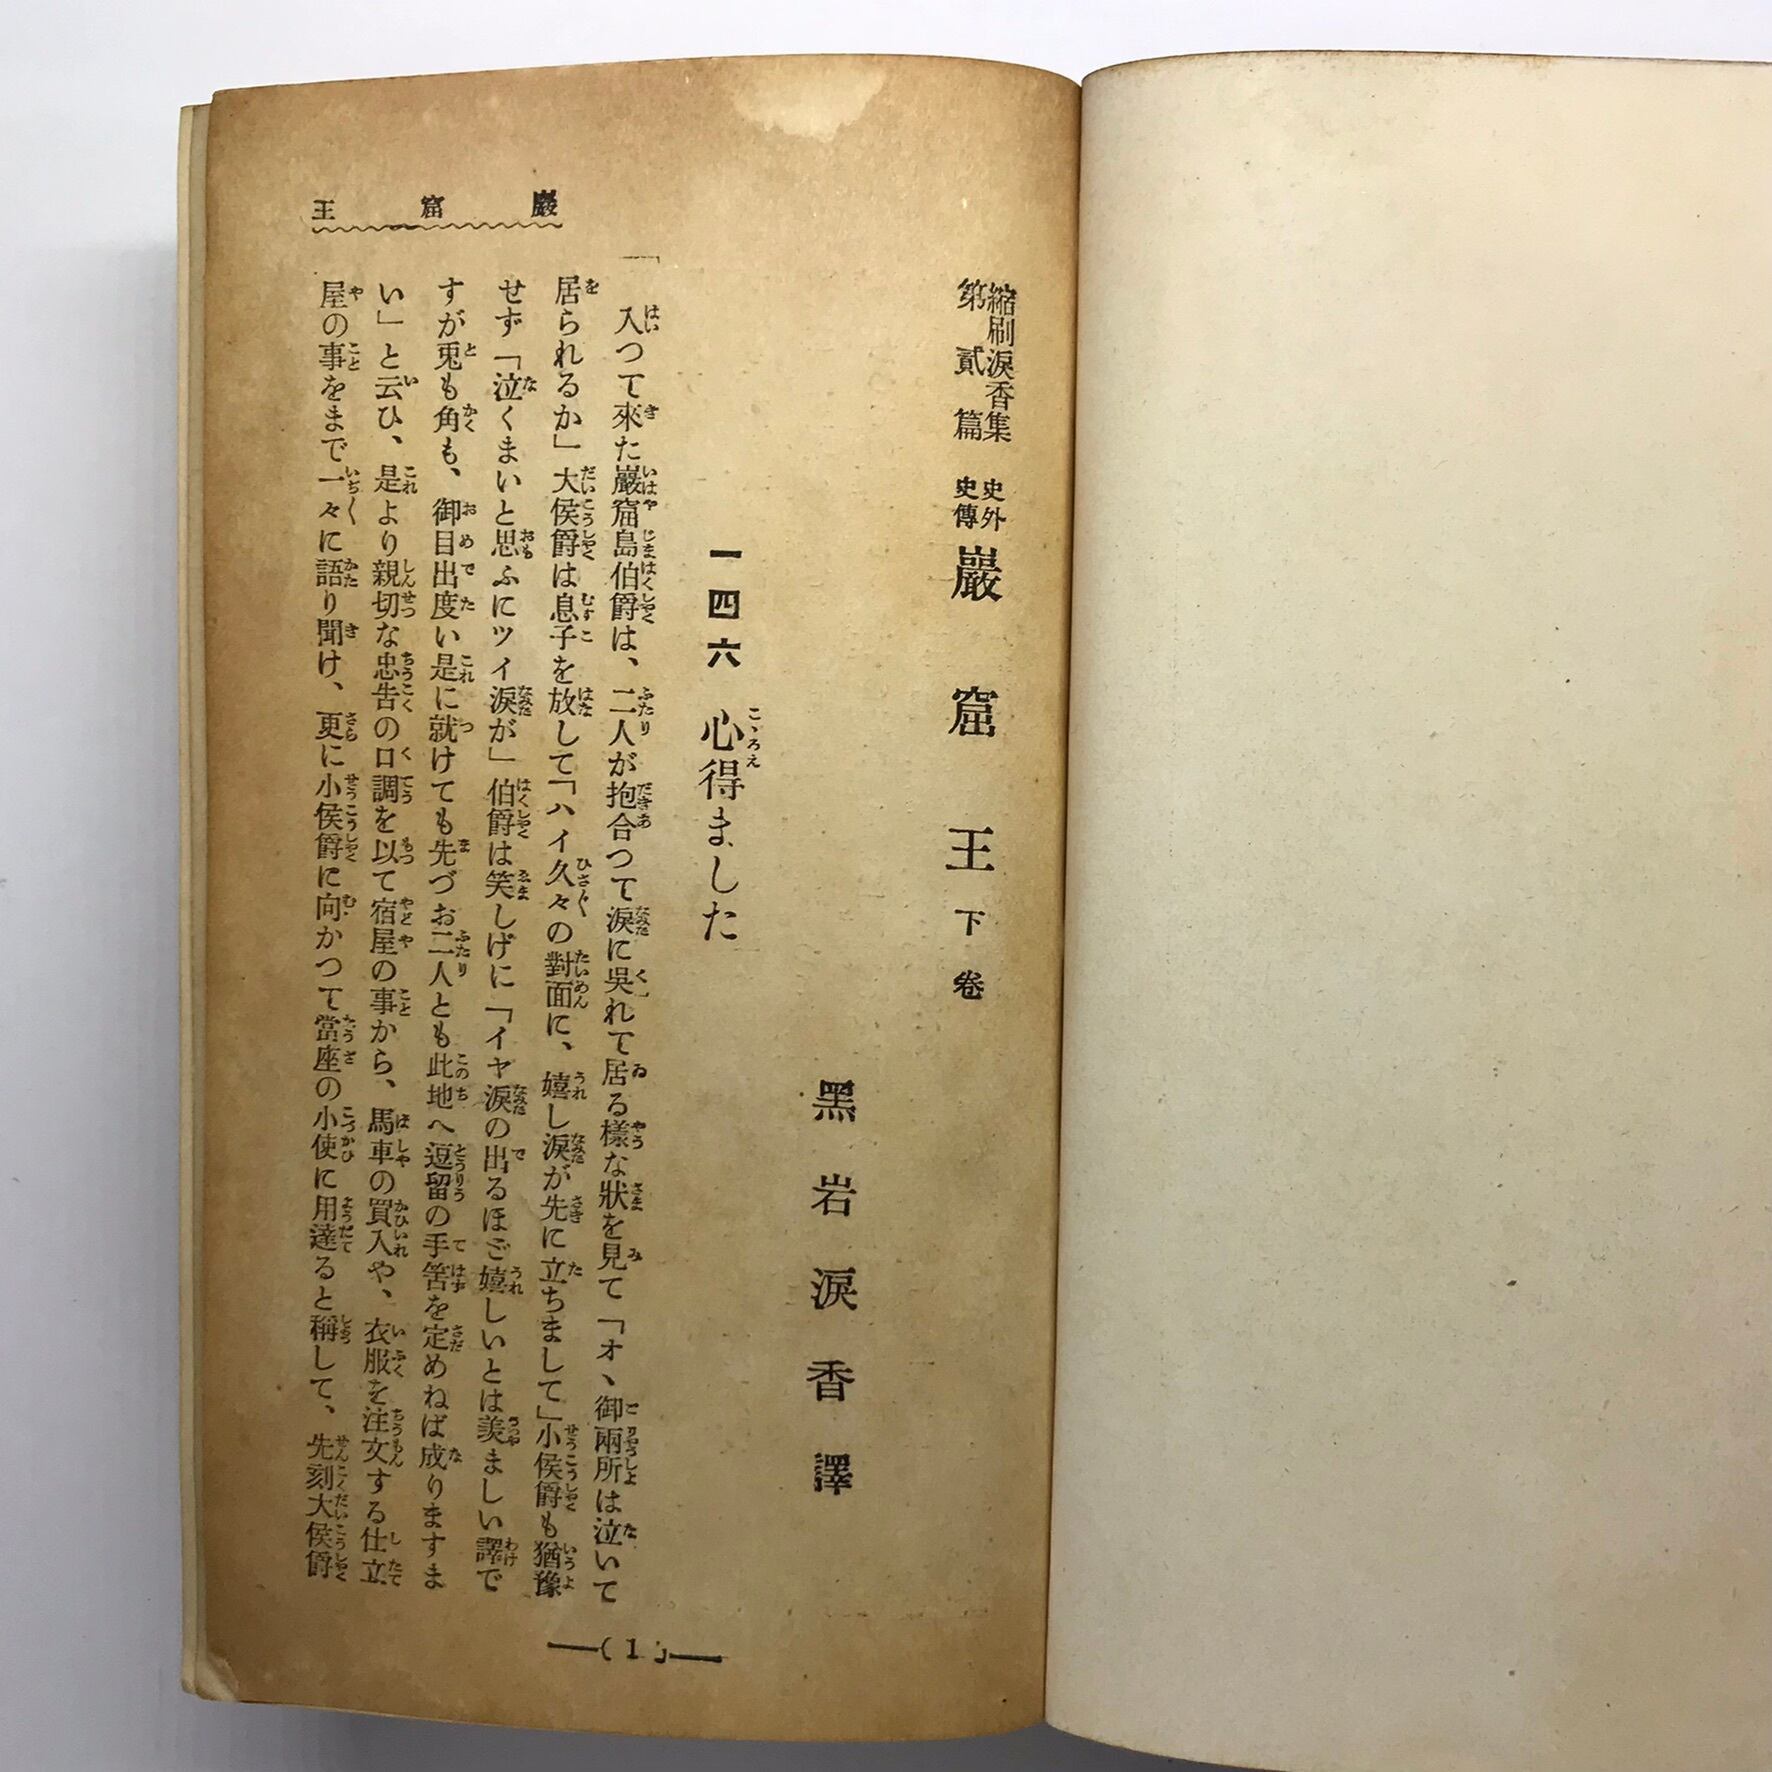 縮刷淚香集
第貳篇
史外
史傳
巖窟王下卷
黑岩淚香譯
一四六 心得ました
入つて來た巖窟島伯爵は、二人が抱合つて淚に吳れて居る樣な狀を見て「オヽ御兩所は泣いて
居られるか」大侯爵は息子を放して「ハイ久々の對面に、嬉し淚が先に立ちまして」小侯爵も猶豫
せず「泣くまいと思ふにツイ淚が」伯爵は笑しげに「イヤ淚の出るほど嬉しいとは羨ましい譯で
すが兎も角も、御目出度い是に就けても先づお二人とも此地へ逗留の手筈を定めねば成りますま
い」と云ひ、是より親切な忠吿の口調を以て宿屋の事から、馬車の買入や、衣服を注文する仕立
屋の事をまで一々に語り聞け、更に小侯爵に向かつて當座の小使に用達ると稱して、先刻大侯爵
巖窟王
(1)